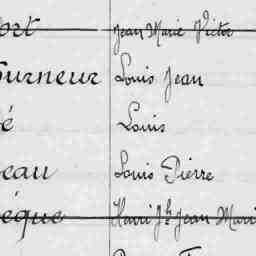 ort Jean Marie Victor
ourneur Louis Jean
é Louis
eau Louis Pierre
èque Henri Jh Jean Mari